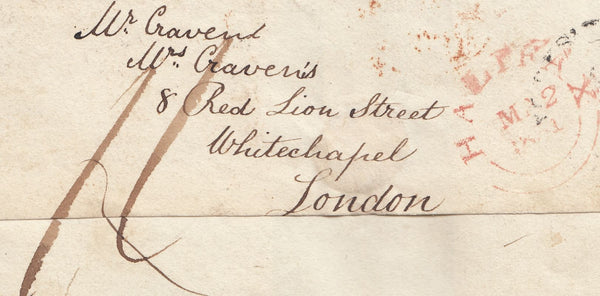 Mr. Cravend
Mrs Craven's
8 Red Lion Street
Whitechapel
London
HALIFAX
MA 2